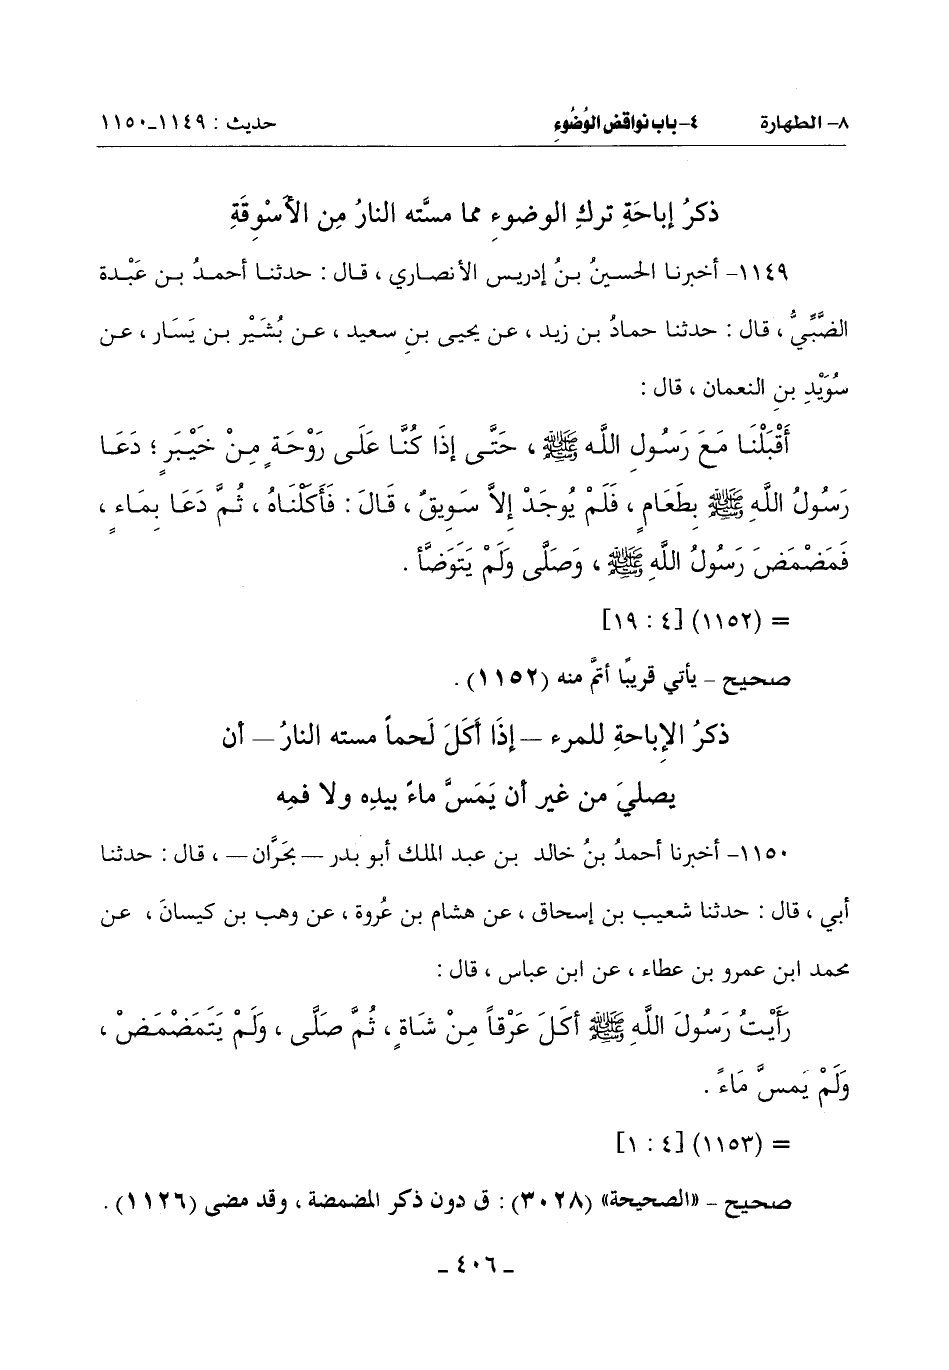 ٨- الطهارة ٤- باب نواقض الوُضُوءِ حديث : ١١٤٩-١١٥٠
ذكرُ إباحَةِ تركِ الوضوءِ مما مسَّته النارُ مِن الأَسْوِقَةِ
١١٤٩- أخبرنا الحسينُ بنُ إدريس الأنصاري ، قال : حدثنا أحمدُ بن عَبْدة
الضَّبِّيُّ ، قال : حدثنا حمادُ بن زيد ، عن يحيى بنِ سعيد ، عن بُشَيْر بن يَسَار ، عن
سُوَيْدِ بنِ النعمان ، قال :
أَقْبَلْنَا مَعَ رَسُولِ اللَّه ﷺ ، حَتَّى إِذَا كُنَّا عَلَى رَوْحَةٍ مِنْ خَيْبَرٍ ؛ دَعَا
رَسُولُ اللَّهِ ﷺ بِطَعَامٍ ، فَلَمْ يُوجَدْ إِلاَّ سَوِيقٌ ، قَالَ : فَأَكَلْنَاهُ ، ثُمَّ دَعَا بِمَاءٍ ،
فَمَضْمَضَ رَسُولُ اللَّهِ ﷺ ، وَصَلَّى وَلَمْ يَتَوَضَّأْ .
= (١١٥٢) [٤ : ١٩]
صحيح - يأتي قريبًا أتمَّ منه (١١٥٢) .
ذكرُ الإباحةِ للمرء —إِذَا أَكَلَ لَحماً مسته النارُ— أن
يصليَ من غير أن يَمَسَّ ماءً بيدِه ولا فمِه
١١٥٠- أخبرنا أحمدُ بنُ خالد بن عبد الملك أبو بدر —بحَرَّان— ، قال : حدثنا
أبي ، قال : حدثنا شعيب بن إسحاق ، عن هشام بن عُروة ، عن وهب بن كيسانَ ، عن
محمد ابن عمرو بن عطاء ، عن ابن عباس ، قال :
رَأَيْتُ رَسُولَ اللَّهِ ﷺ أكَلَ عَرْقاً مِنْ شَاةٍ ، ثُمَّ صَلَّى ، وَلَمْ يَتَمَضْمَضْ ،
وَلَمْ يَمسَّ مَاءً .
= (١١٥٣) [٤ : ١]
صحيح - «الصحيحة» (٣٠٢٨) : ق دون ذكر المضمضة ، وقد مضى (١١٢٦) .
- ٤٠٦ -